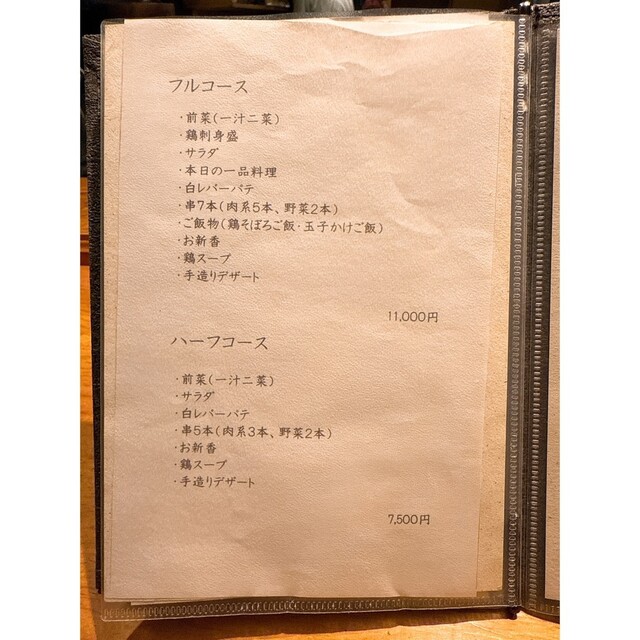 フルコース
・前菜(一汁二菜)
・鶏刺身盛
・サラダ
・本日の一品料理
・白レバーパテ
・串7本(肉系5本、野菜2本)
・ご飯物(鶏そぼろご飯・玉子かけご飯)
・お新香
・鶏スープ
・手造りデザート
11,000円
ハーフコース
・前菜(一汁二菜)
・サラダ
・白レバーパテ
・串5本(肉系3本、野菜2本)
・お新香
・鶏スープ
・手造りデザート
7,500円